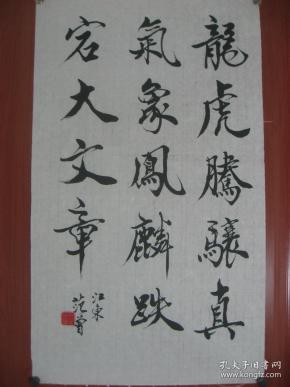 龍虎騰驤真
氣象鳳麟跌
宕大文章
江東
范曾
孔夫子旧书网